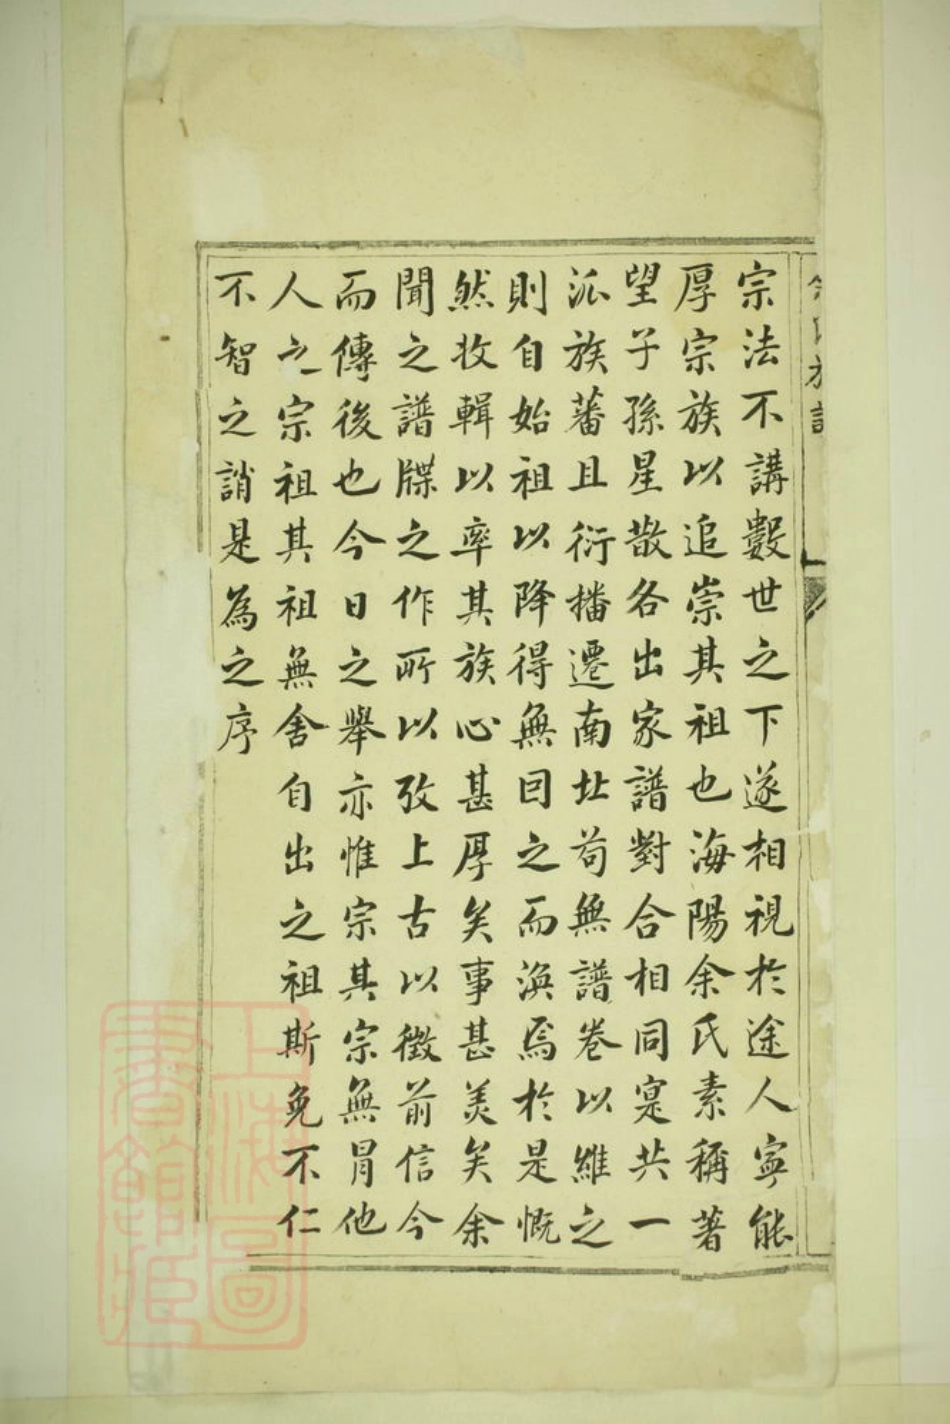 宗法不講數世之下遂相視於途人寧能
厚宗族以追崇其祖也海陽余氏素稱著
望子孫星散各出家譜對合相同寔共一
派族蕃且衍播遷南北苟無譜卷以維之
則自始祖以降得無囙之而渙焉於是慨
然收輯以率其族心甚厚矣事甚美矣余
聞之譜牒之作所以攷上古以徵前信今
而傳後也今日之舉亦惟宗其宗無冒他
人之宗祖其祖無舍自出之祖斯免不仁
不智之誚是為之序
上海圖
書館藏